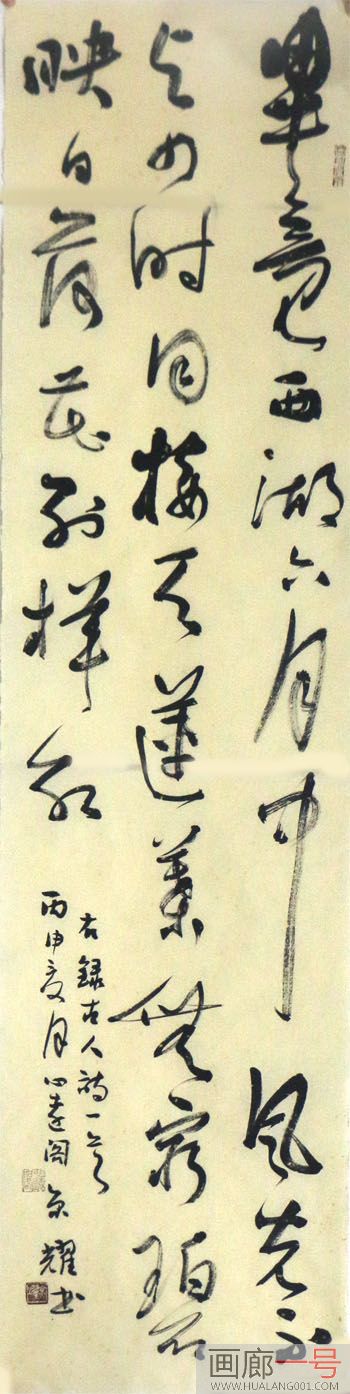 畢竟西湖六月中風光不
与四時同接天蓮葉無窮碧
映日荷花別樣紅
右録古人詩一首
丙申夏月心遠閣京耀书
画廊一号
WWW.HUALANG001.COM